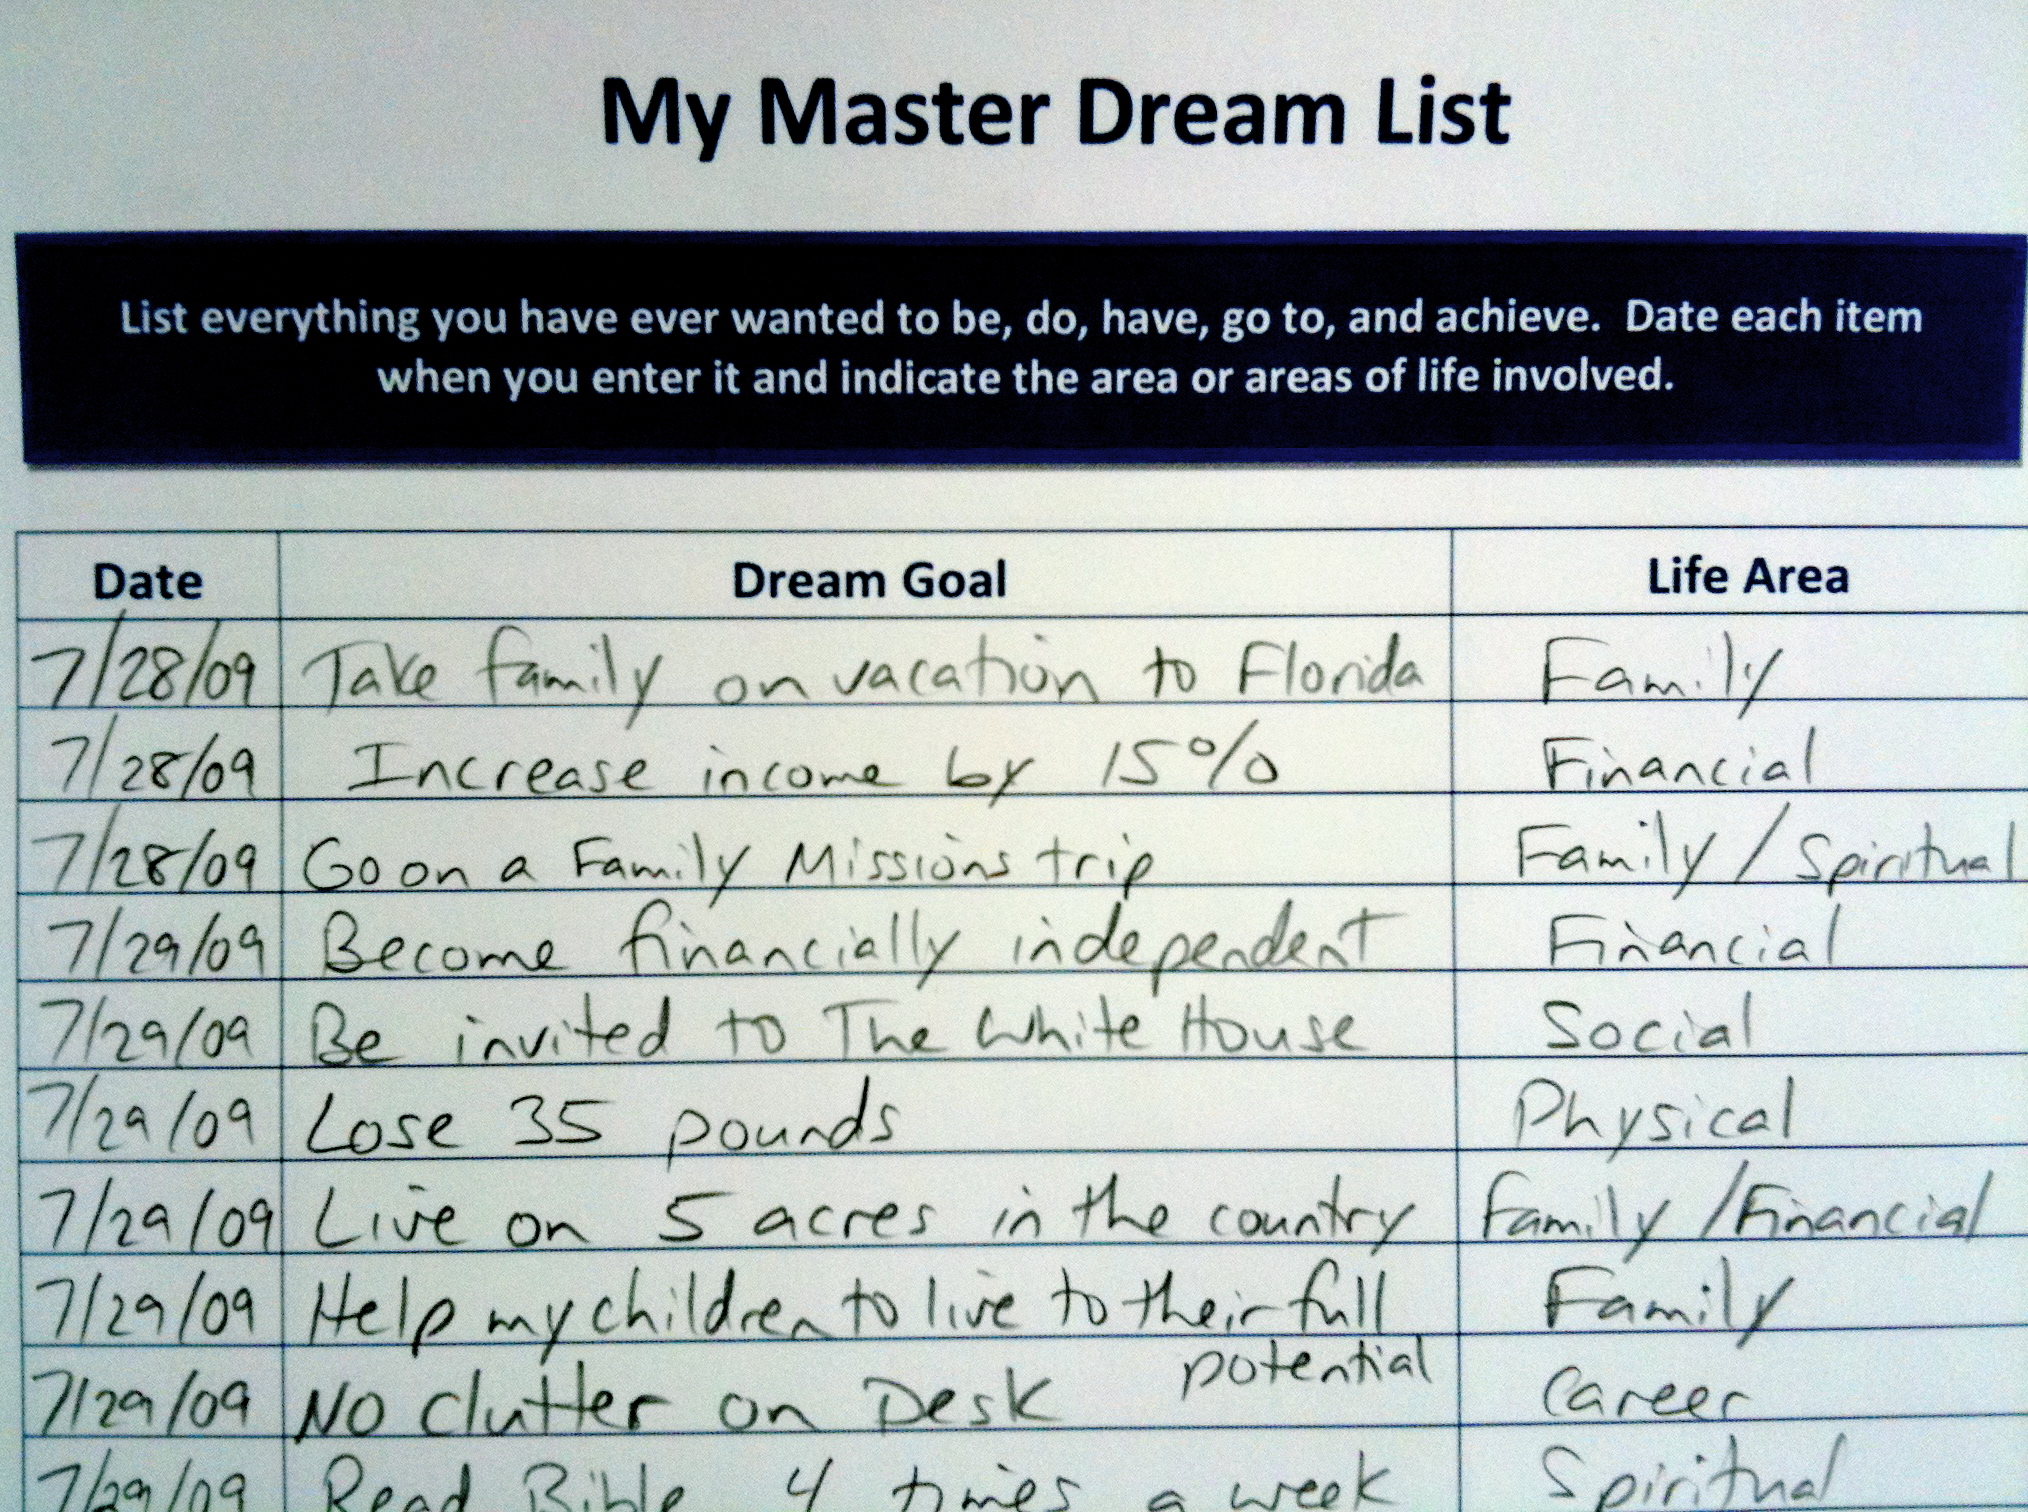 My Master Dream List
List everything you have ever wanted to be, do, have, go to, and achieve.  Date each item
when you enter it and indicate the area or areas of life involved.
Date Dream Goal Life Area
7/28/09 Take family on vacation to Florida Family
7/28/09 Increase income by 15% Financial
7/28/09 Go on a Family Missions trip Family / Spiritual
7/29/09 Become financially independent Financial
7/29/09 Be invited to The White House Social
7/29/09 Lose 35 pounds Physical
7/29/09 Live on 5 acres in the country Family / Financial
7/29/09 Help my children to live to their full Family
potential
7/29/09 No clutter on Desk Career
7/29/09 Read Bible 4 times a week Spiritual